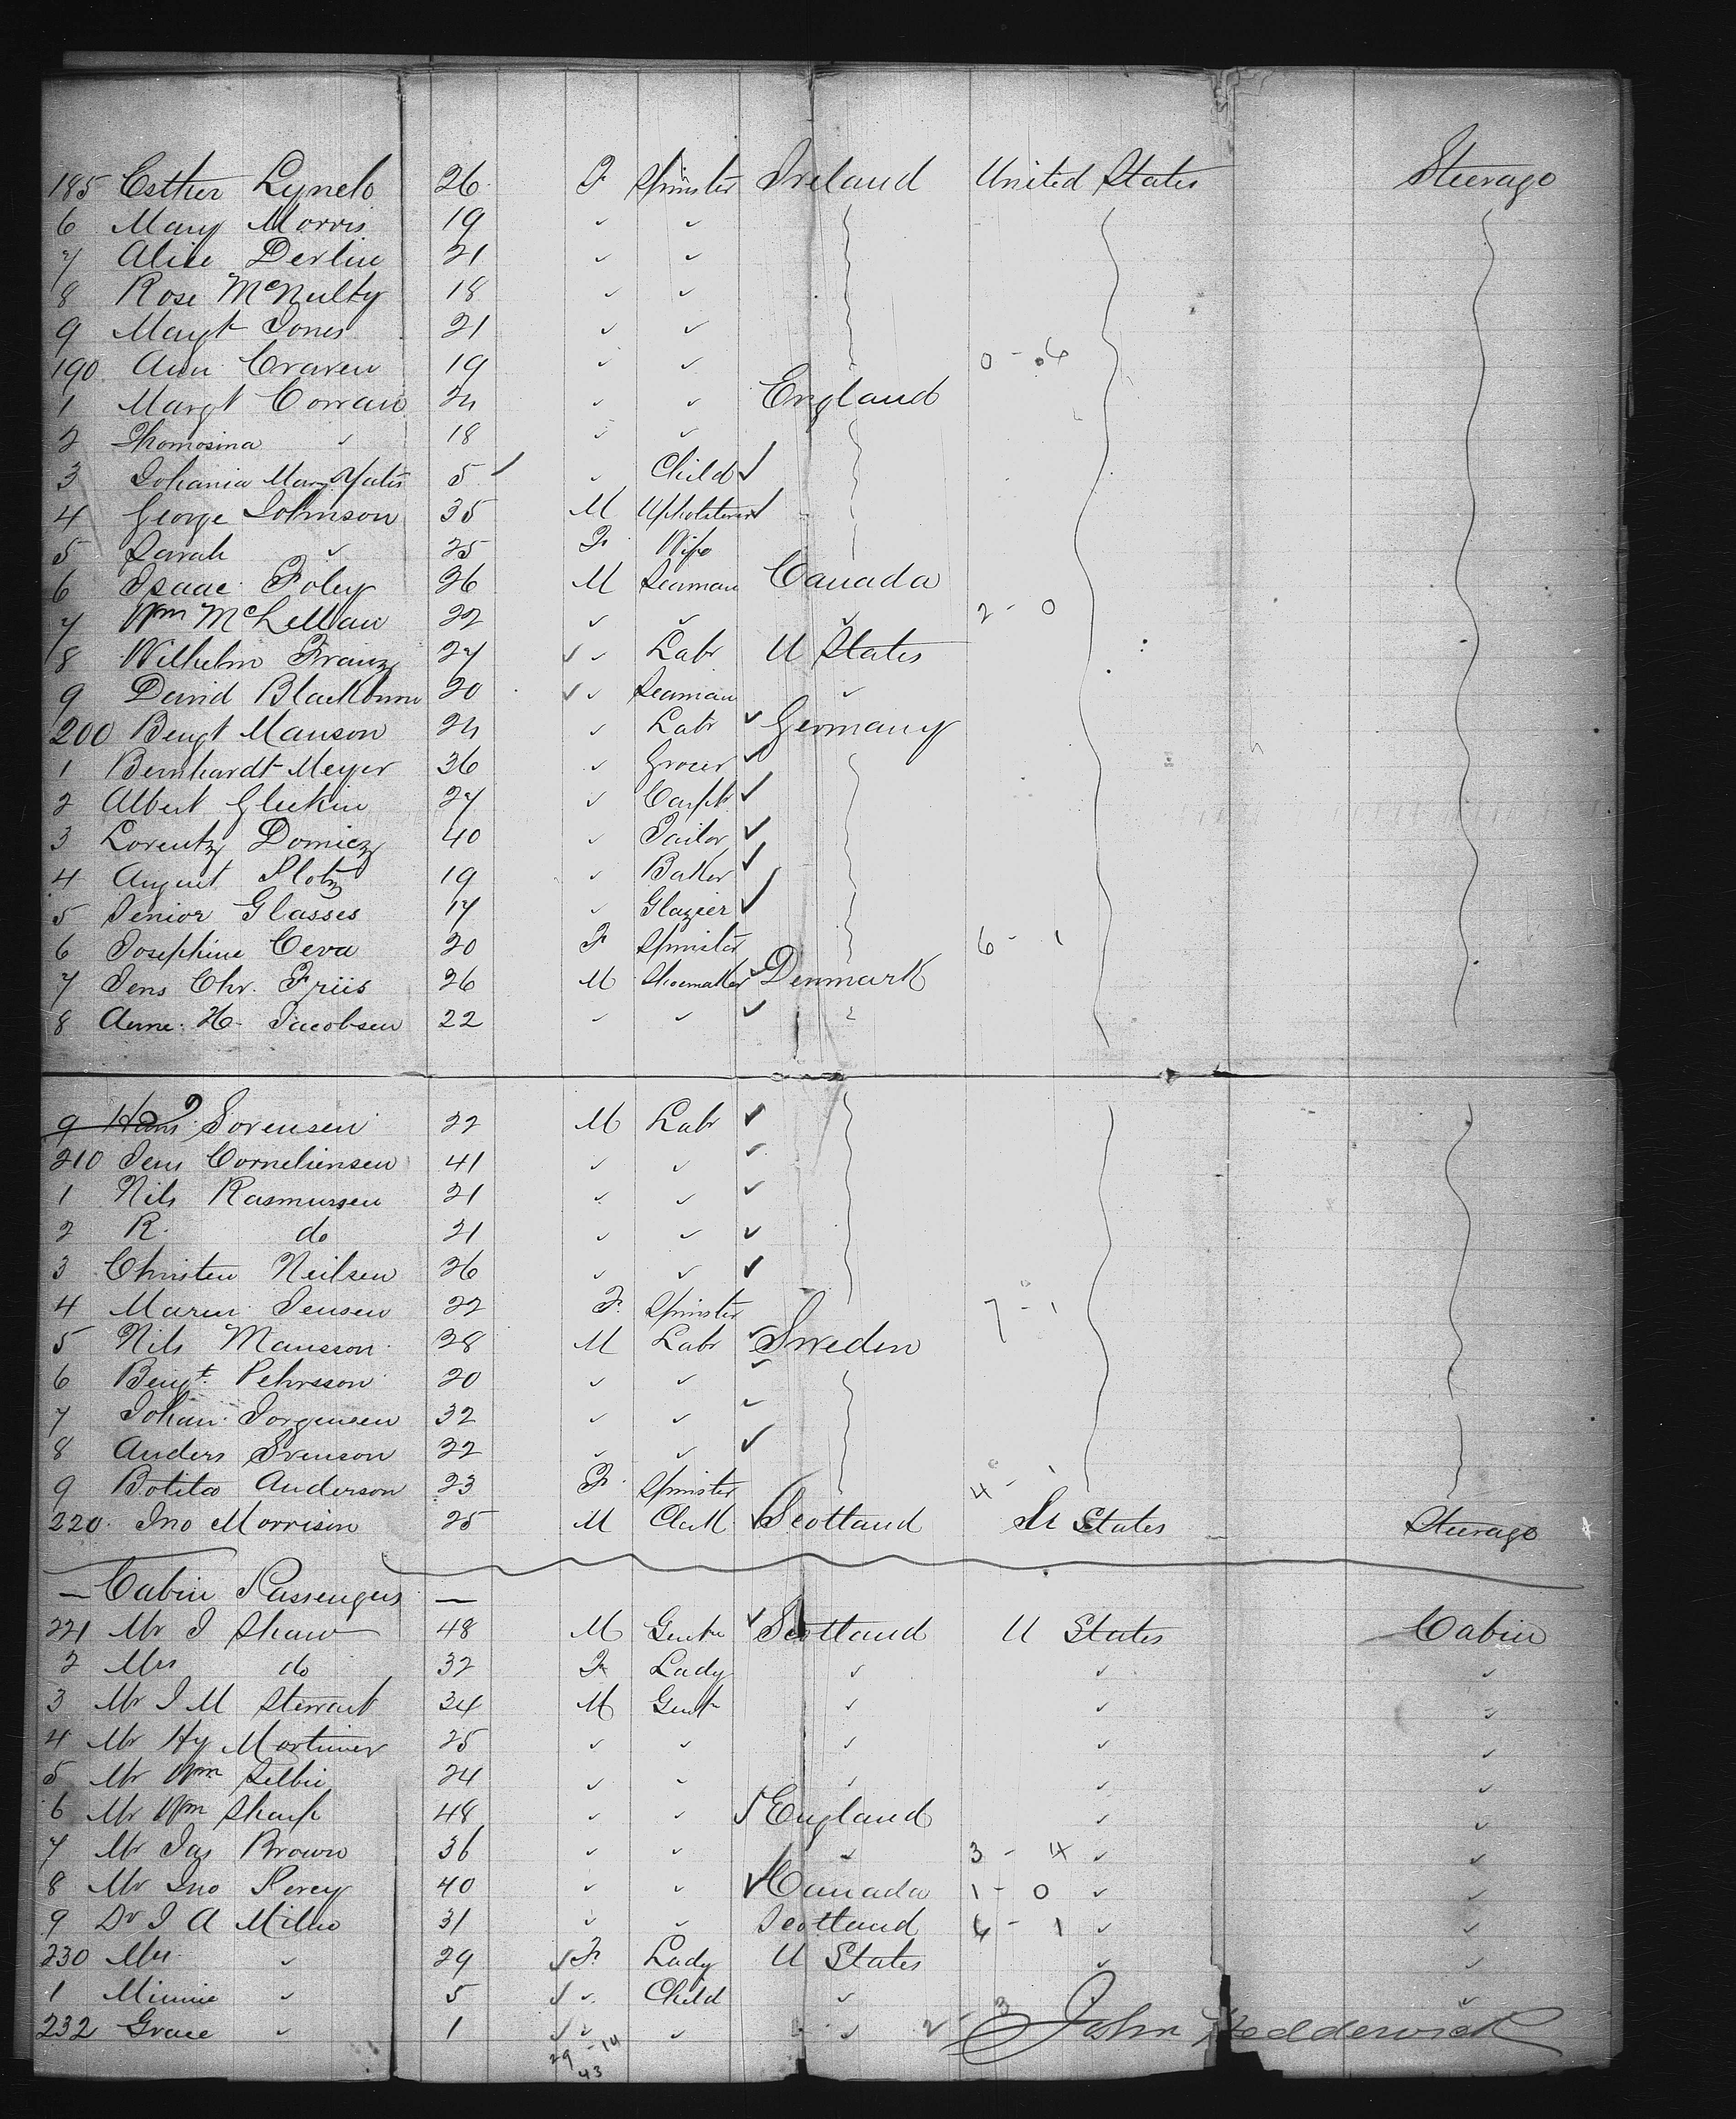 185 Esther Lynch 26 F Spinster Ireland United States Steerage
6 Mary Morris 19 " "
7 Alice Devlin 21 " "
8 Rose McNulty 18 " "
9 Margt Jones 21 " "
190 Ann Craven 19 " " 0 - 6
1 Margt Corran 24 " " England
2 Thomosina " 18 " "
3 Johania Mary Yates 5 " Child
4 George Johnson 35 M Upholsterer
5 Sarah " 25 F Wife
6 Isaac Foley 26 M Seaman Canada
7 Wm McLellan 22 " " " 2 - 0
8 Wilhelm Franz 27 " Labr U States
9 David Blackburn 20 " Seaman "
200 Bengt Manson 24 " Labr Germany
1 Bernhardt Meyer 36 " Grocer
2 Albert 27 " Carptr
3 Lorentz Domicz 40 " Tailor
4 August Plotz 19 " Baker
5 Senior Glasses 17 " Glazier
6 Josephine Ceva 20 F Spinster 6 - 1
7 Jens Chr. Friis 26 M Shoemaker Denmark
8 Anne H. Jacobsen 22 " " "
9 Hans Sorensen 22 M Labr
210 Jens Corneliensen 41 " "
1 Nils Rasmussen 21 " "
2 R. do 21 " "
3 Christen Neilsen 26 " "
4 Maren Jensen 22 F. Spinster 7 - 1
5 Nils Mansson 28 M Labr Sweden
6 Bengt Pehrsson 20 " "
7 Johan Jorgensen 32 " "
8 Anders Svenson 22 " "
9 Botila Anderson 23 F. Spinster 4 - 1
220. Jno Morrison 25 M Clerk Scotland U States Steerage
— Cabin Passengers —
221 Mr J Shaw 48 M Gentn Scotland U States Cabin
2 Mrs do 32 F Lady " " "
3 Mr J M Stewart 34 M Gent " " "
4 Mr Hy Mortimer 25 " " " " "
5 Mr Wm Selbie 24 " " " " "
6 Mr Wm Sharp 48 " " England " "
7 Mr Jas Brown 36 " " " 3 - 4 " "
8 Mr Jno Percy 40 " " Canada 1 - 0 " "
9 Dr J A Milne 31 " " Scotland 6 - 1 " "
230 Mrs " 29 F. Lady U States " "
1 Minnie " 5 " Child " "
232 Grace " 1 " " " 2 - 3 John Hedderwick
29 - 14
43